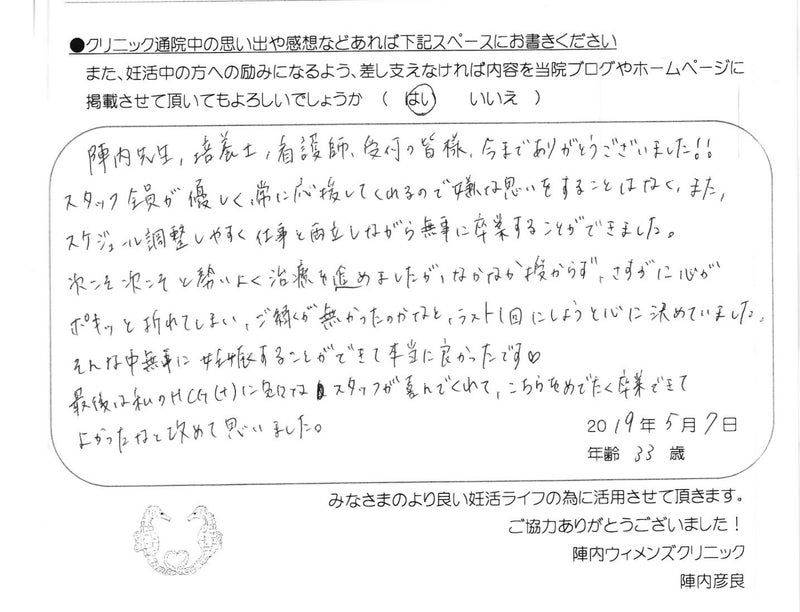 ●クリニック通院中の思い出や感想などあれば下記スペースにお書きください
また、妊活中の方への励みになるよう、差し支えなければ内容を当院ブログやホームページに
掲載させて頂いてもよろしいでしょうか （ はい いいえ ）
陣内先生、培養士、看護師、受付の皆様、今までありがとうございました!!
スタッフ全員が優しく、常に応援してくれるので嫌な思いをすることはなく、また、
スケジュール調整しやすく仕事と両立しながら無事に卒業することができました。
次こそ次こそと勢いよく治療を進めましたが、なかなか授からず、さすがに心が
ポキッと折れてしまい、ご縁が無かったのかなと、ラスト1回にしようと心に決めていました。
そんな中無事に妊娠することができて本当に良かったです♡
最後は私のHCG(+)に色々なスタッフが喜んでくれて、こちらでめでたく卒業できて
よかったなと改めて思いました。
2019年5月7日
年齢 33 歳
みなさまのより良い妊活ライフの為に活用させて頂きます。
ご協力ありがとうございました！
陣内ウィメンズクリニック
陣内彦良